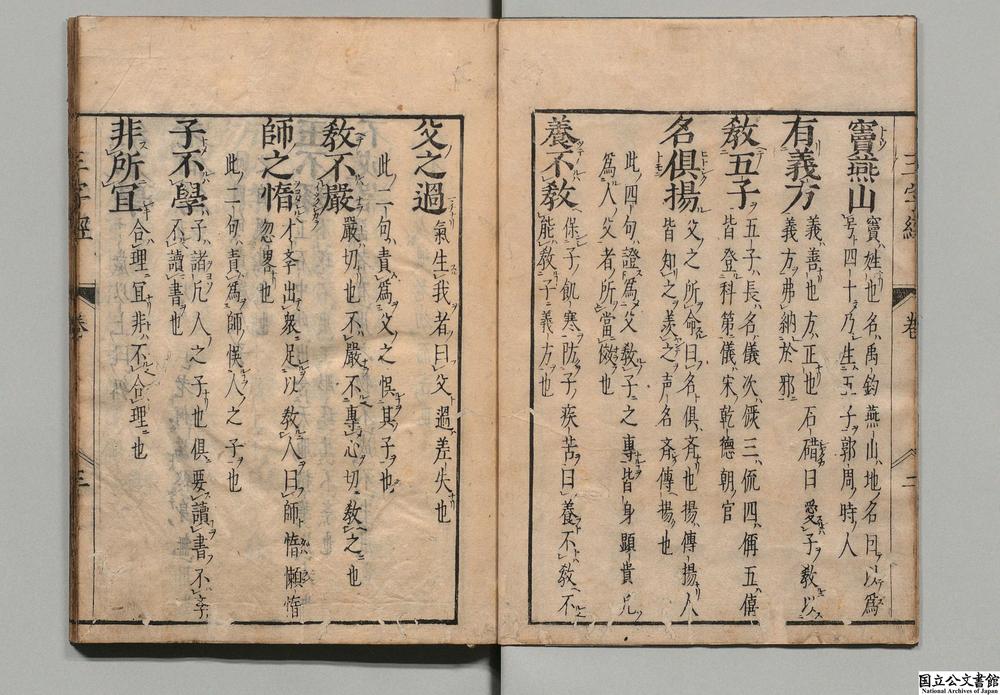 竇燕山 竇姓也名禹鈞燕山地名因以爲
号四十乃生五子郭周時人
有義方 義善也方正也石碏曰愛子教以
義方弗納於邪
教五子 五子長名儀次俟三侃四偁五僖
皆登科第儀宋乾德朝官
名俱揚 父之所命曰名俱齐也揚傳揚人
皆知之羨之声名斉傳揚也
此四句證爲父教子之專皆身顯貴凡
爲人父者所當倣也
養不教 保子飢寒防子疾苦曰養不教不
能教子義方也
父之過 氣生我者曰父過差失也
此二句責爲父之悮其子也
教不嚴 嚴切也不嚴不專心切教之也
師之惰 才斈出衆足以教人曰師惰懶惰
忽畧也
此二句責爲師悮人之子也
子不學 子諸凡人之子也俱要讀書不斈
不讀書也
非所冝 合理冝非不合理也
三字經 卷 二
三字經 卷 三
国立公文書館
National Archives of Japan